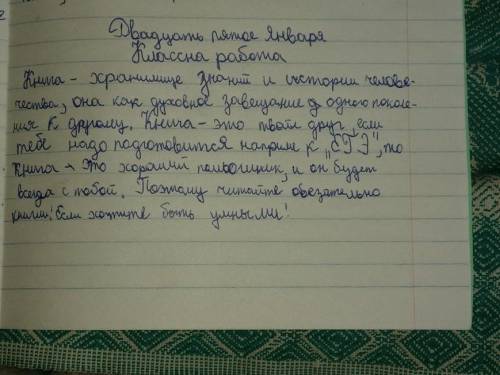 Двадцать пятое Января
Классна работа
Книга - хранилище знаний и истории челове-
чества, она как духовное завещание одного поколе-
ния к другому. Книга - это твой друг, если
тебе надо подготовится наприме к „ЕГЭ", то
книга - это хороший помощник, и он будет
всегда с тобой. Поэтому читайте обезательно
книги! Если хотите быть умными!